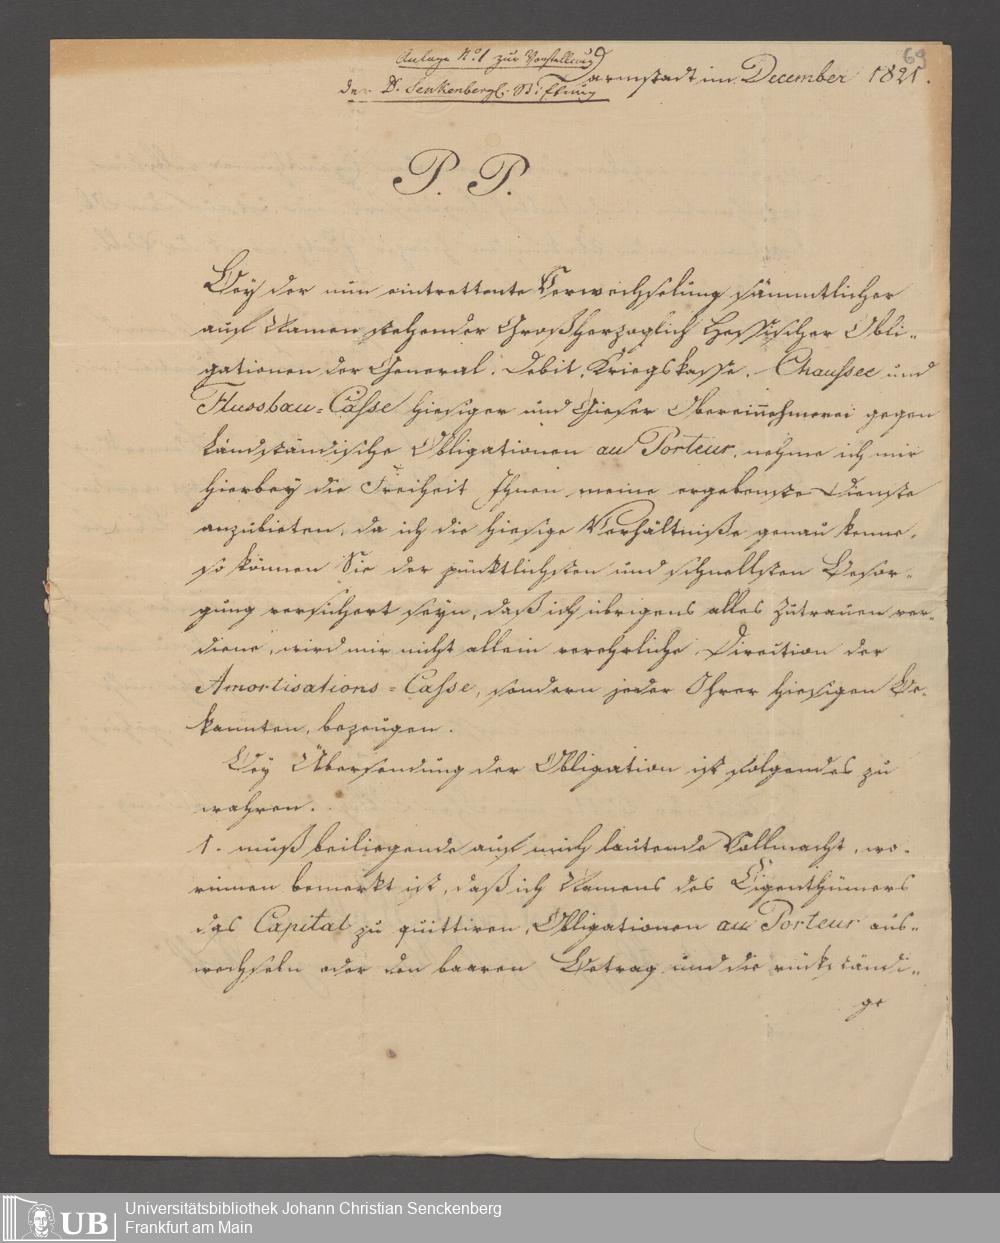 69
Anlage No. 1 zur Vorstellung
der D. Senkenbergl. Stiftung
Darmstadt im December 1821.
P. P.
Bey der nun eintrettente Verwechselung sämmtlicher
auf Namen stehender Großherzoglich Hessischer Obli-
gationen der General. Debit, Kriegskasse, Chaussee und
Flussbau=Casse hiesiger und Gieser Obereinnehmerei gegen
Landständische Obligationen au Porteur, nehme ich mir
hierbey die Freiheit Ihnen meine ergebenste Dienste
anzubieten, da ich die hiesige Verhältniße genau kenne,
so können Sie der pünktlichsten und schnellsten Besor-
gung versichert seyn, daß ich übrigens alles Zutrauen ver-
diene, wird mir nicht allein verehrliche Direction der
Amortisations=Casse, sondern jeder Ihrer hiesigen Be-
kannten, bezeugen.
Bey Übersendung der Obligation ist folgendes zu
wahren.
1. muß beiliegende auf mich lautende Vollmacht, wo-
rinnen bemerkt ist, daß ich Namens des Eigenthümers
das Capital zu quittiren, Obligationen au Porteur aus-
wechseln oder den baaren Betrag und die rückständi-
ge
UB
Universitätsbibliothek Johann Christian Senckenberg
Frankfurt am Main